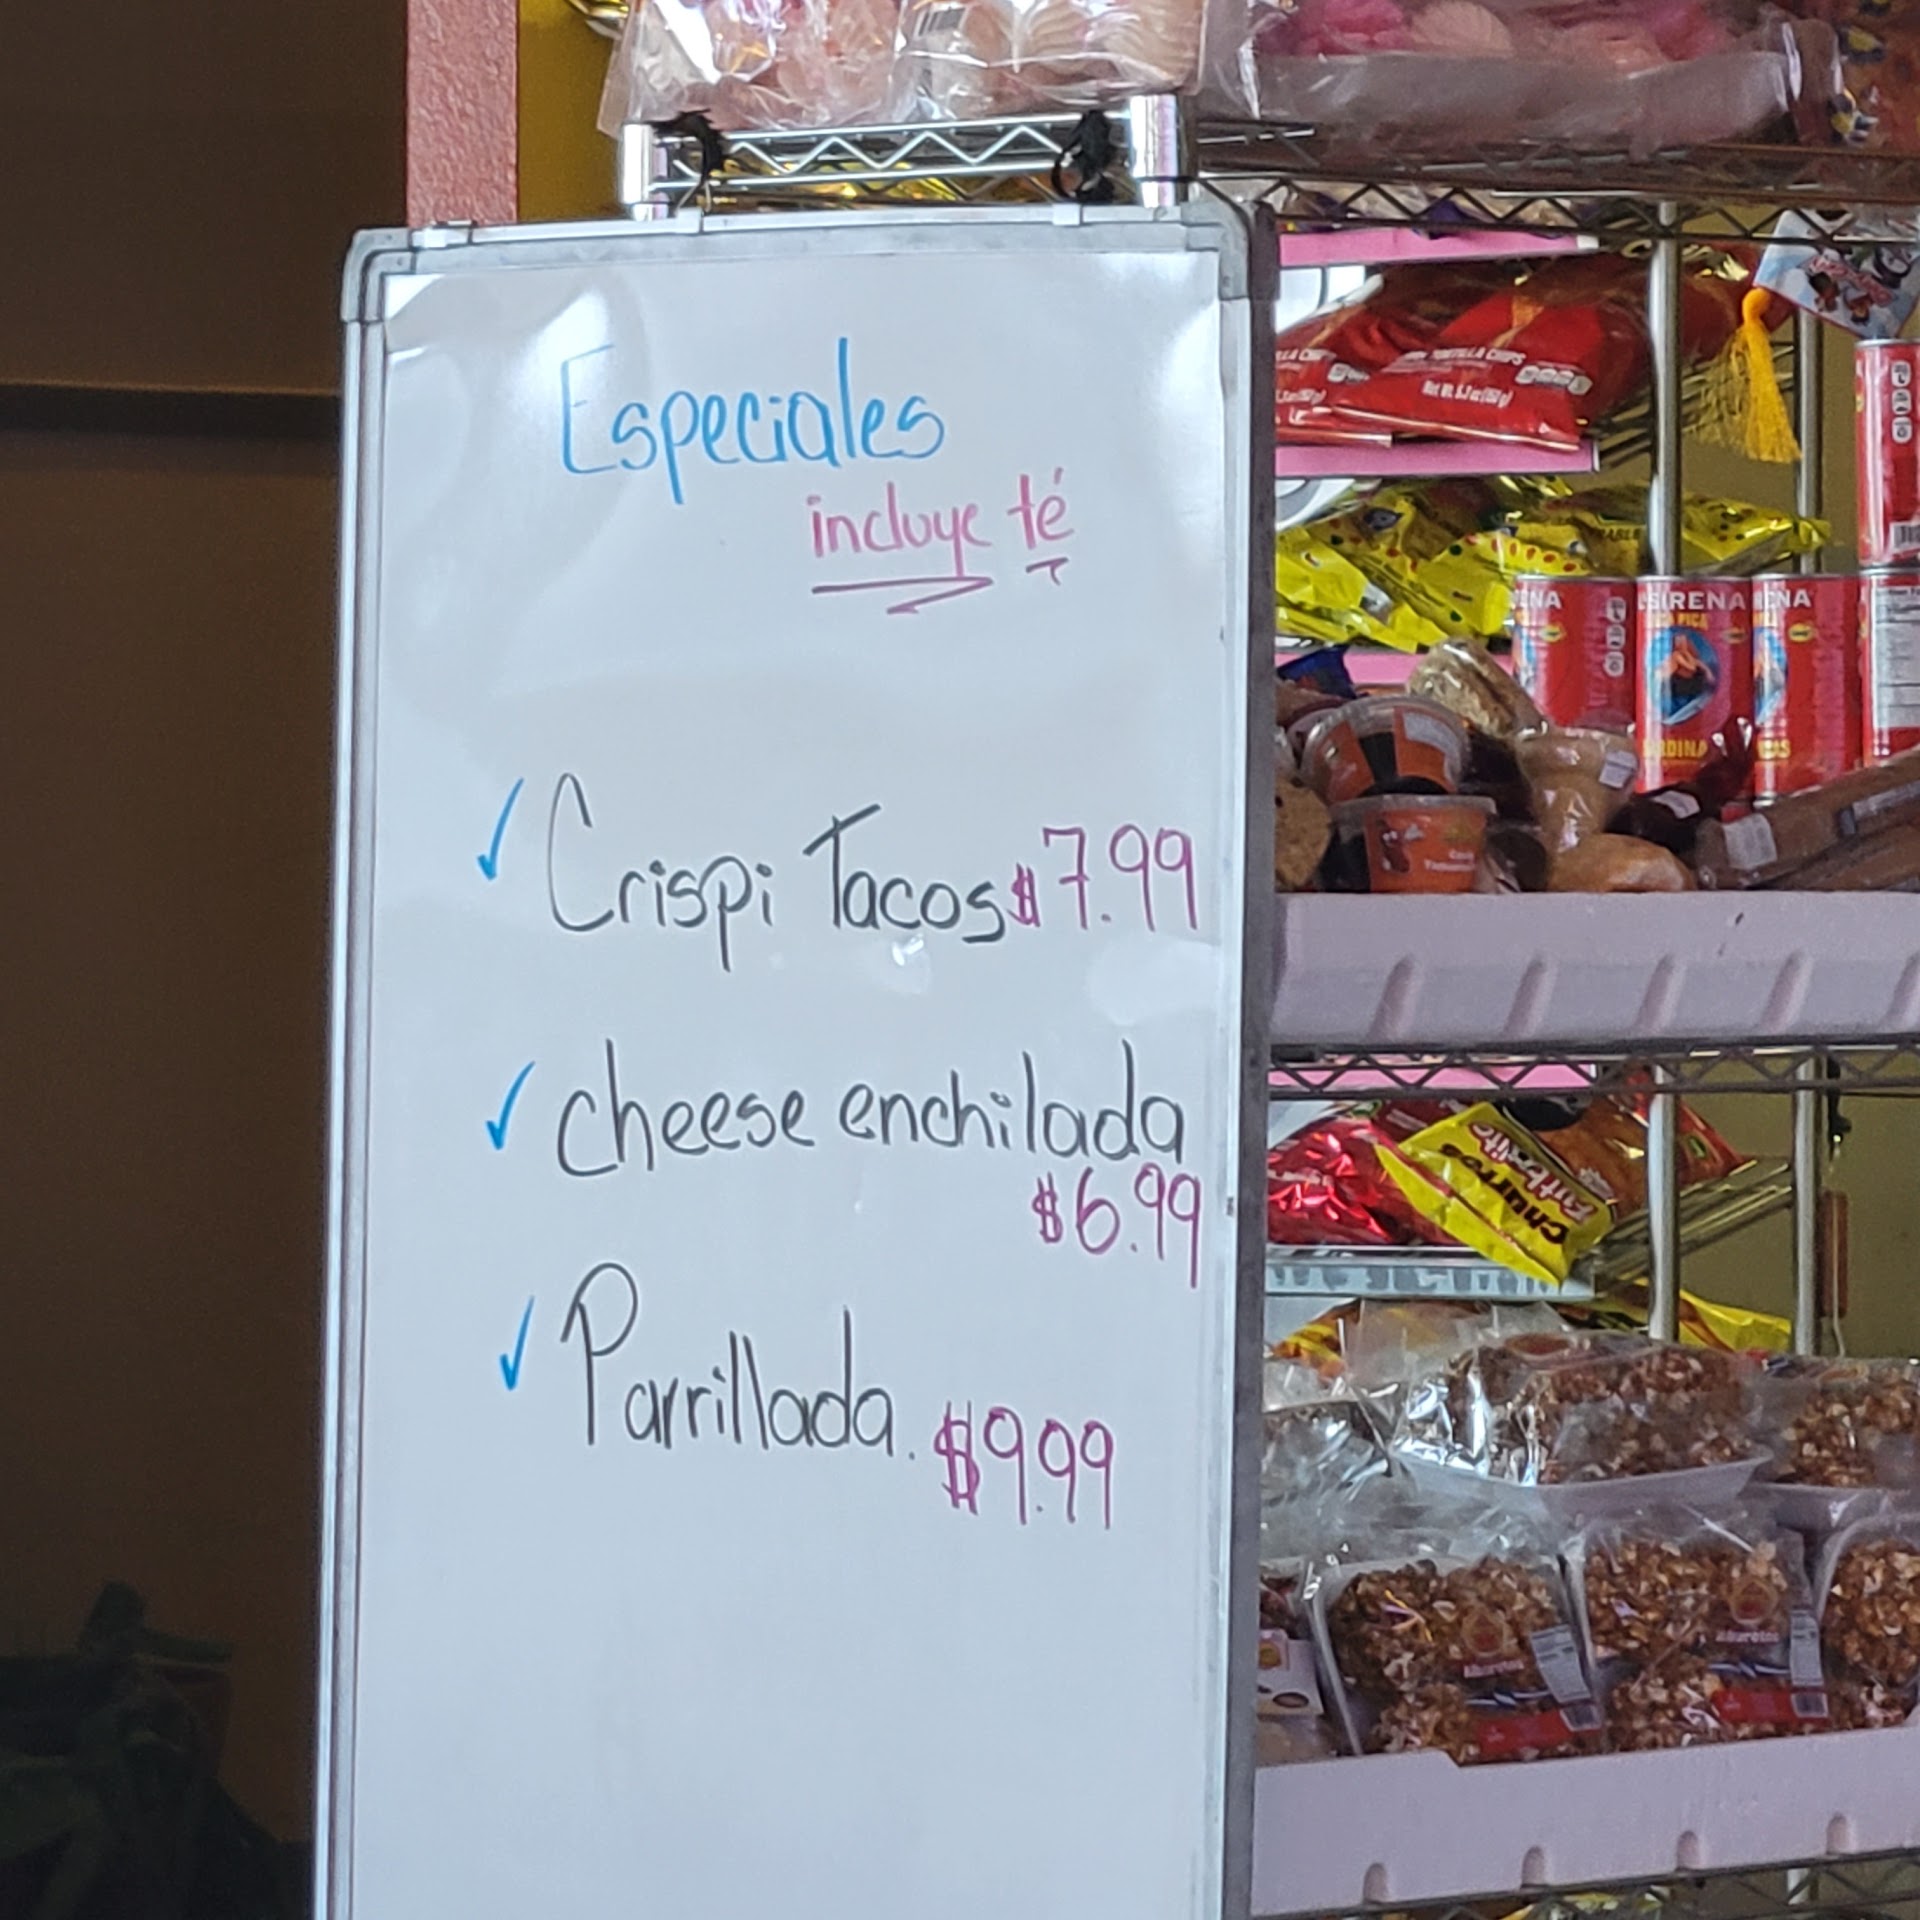 Especiales
incluye té
✓ Crispi Tacos $7.99
✓ cheese enchilada
$6.99
✓ Parrillada. $9.99
TORTILLA CHIPS
SIRENA
Churros